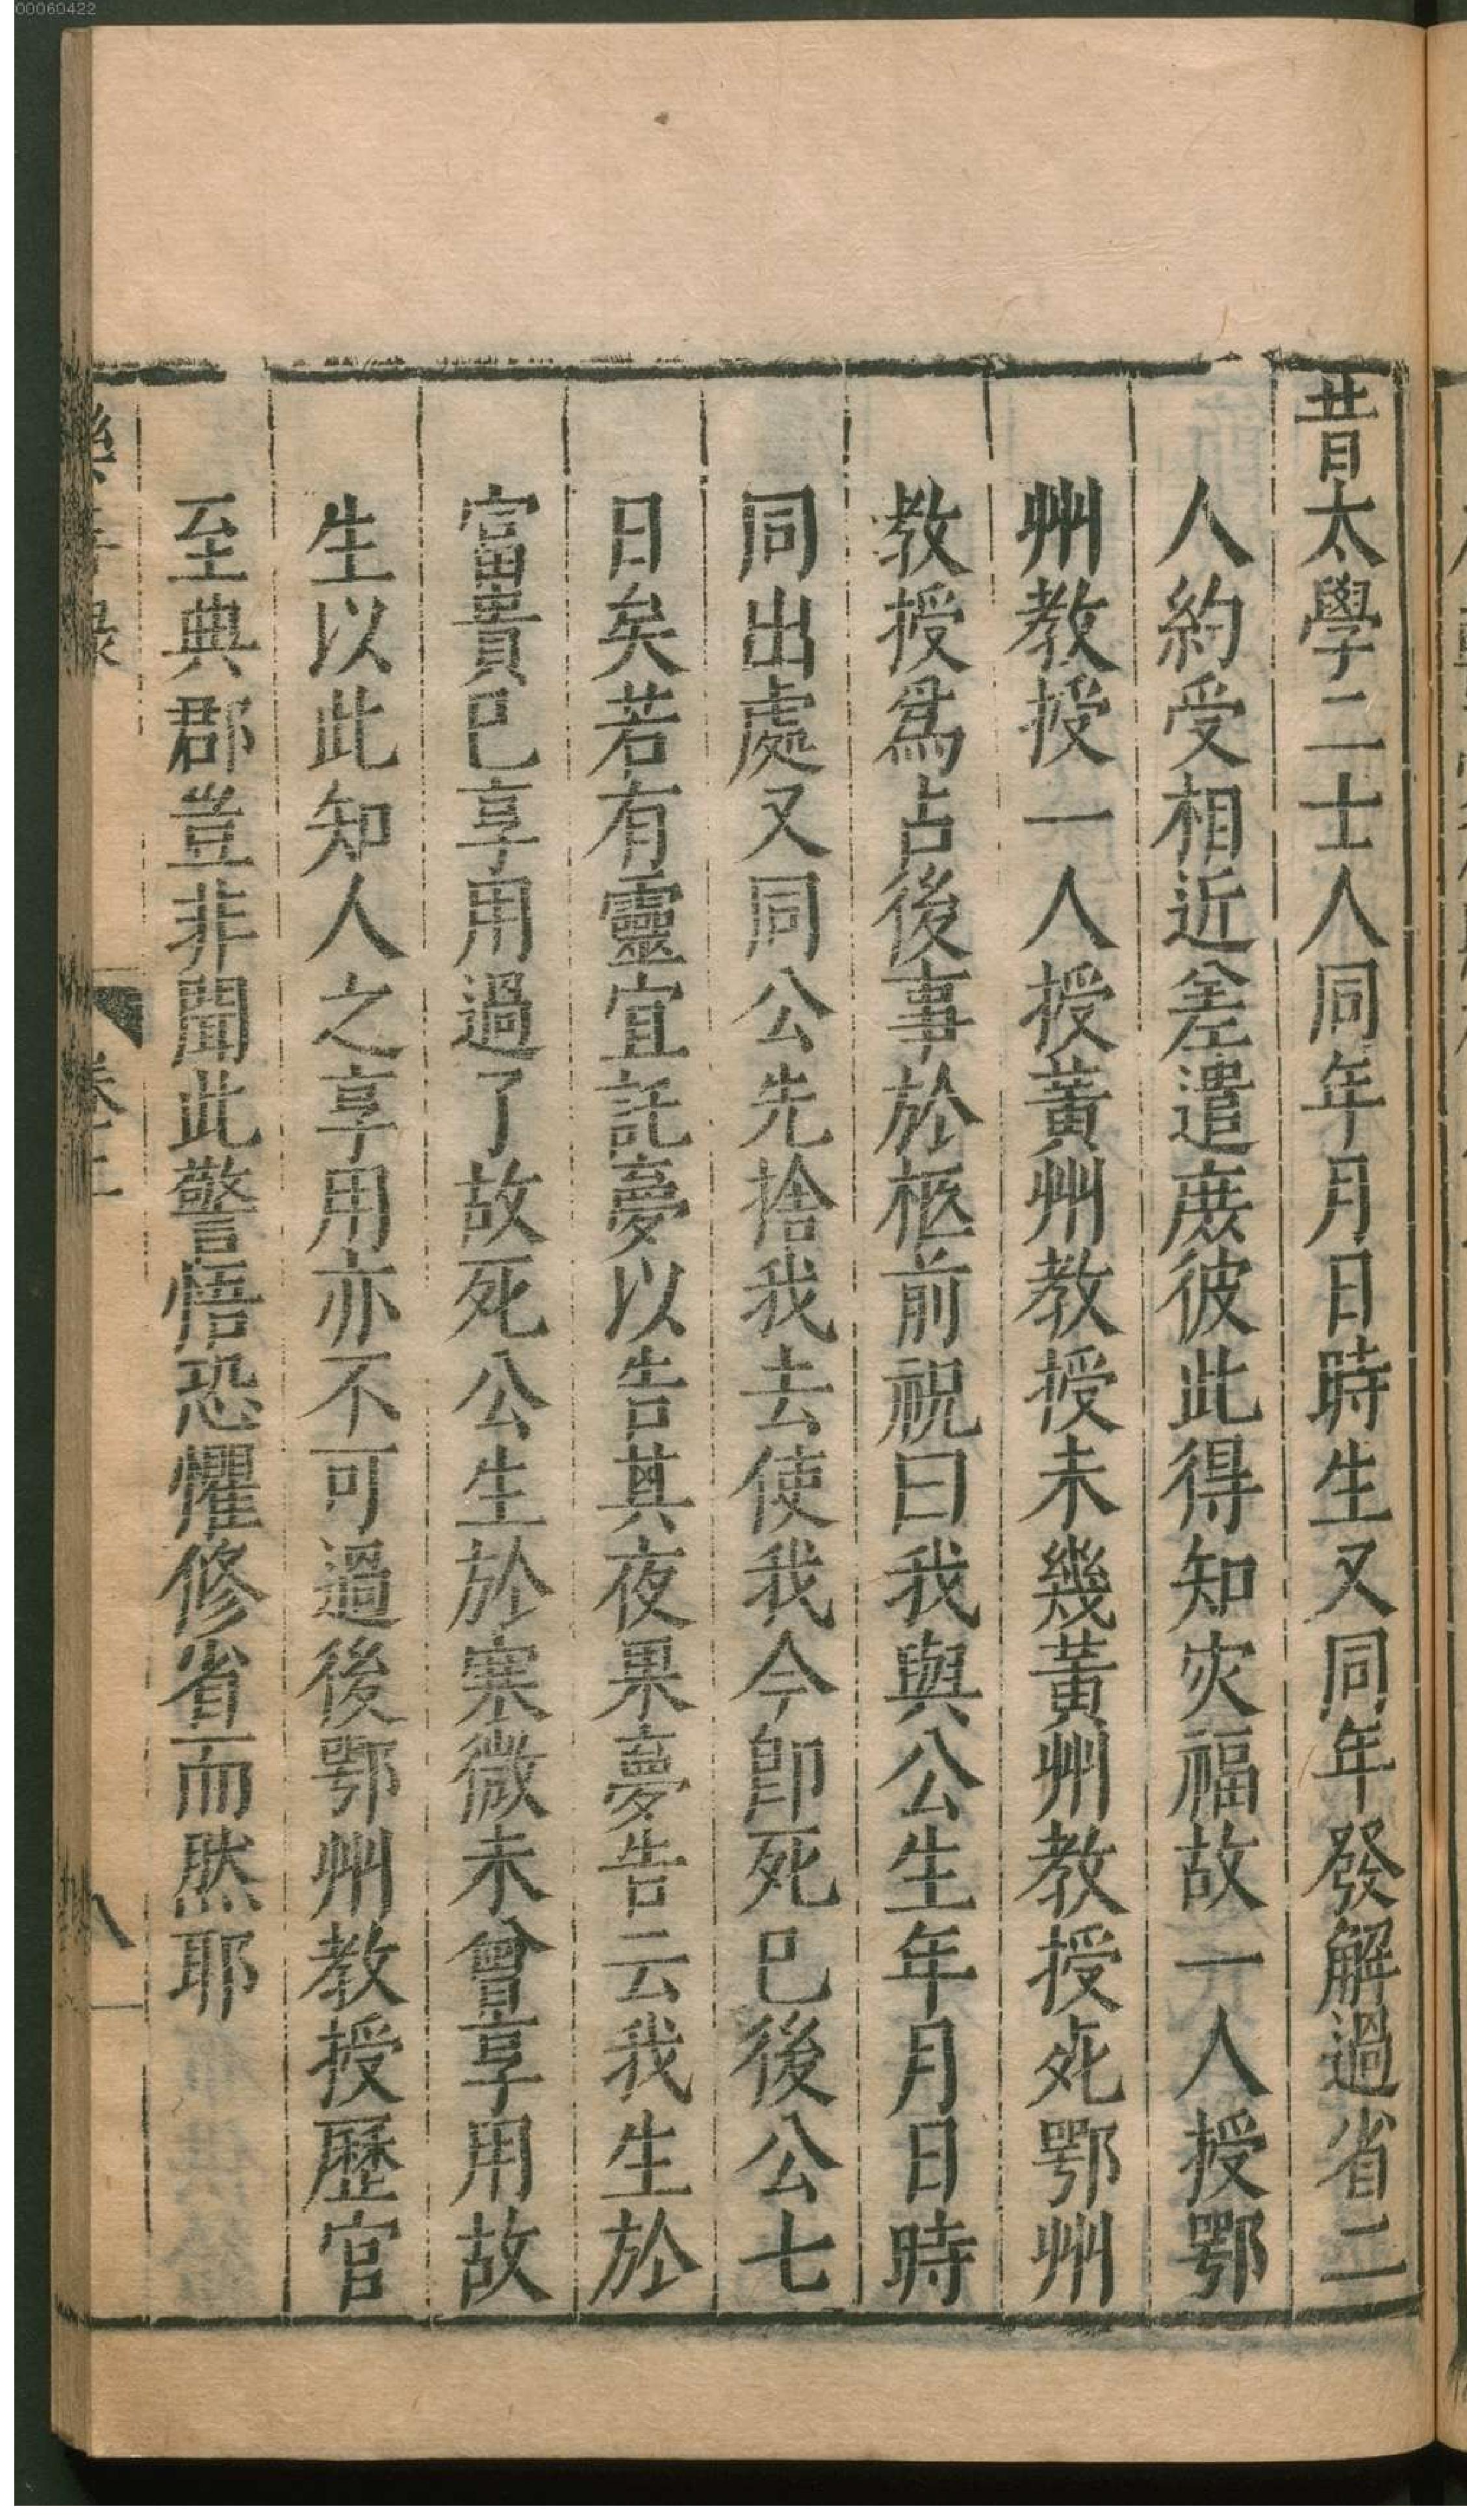 00060422
昔太學二士人同年月日時生又同年發解過省二
人約受相近差遣庻彼此得知灾福故一人授鄂
州教授一人授黃州教授未幾黃州教授死鄂州
教授爲占後事於柩前祝曰我與公生年月日時
同出處又同公先捨我去使我今卽死已後公七
日矣若有靈宜託夢以告其夜果夢告云我生於
富貴已享用過了故死公生於寒微未曾享用故
生以此知人之享用亦不可過後鄂州教授歷官
至典郡豈非聞此警悟恐懼修省而然耶
八